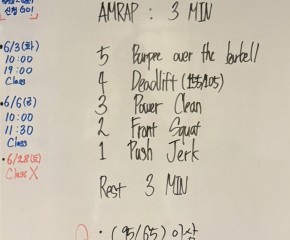 신청 GO!
AMRAP : 3 MIN
• 6/3 (화)
10:00
19:00
Class
• 6/6 (금)
10:00
11:30
Class
• 6/28 (토)
Class X
5 Burpee over the barbell
4 Deadlift (155/105)
3 Power Clean
2 Front Squat
1 Push Jerk
Rest 3 MIN
• (95/65) 이상